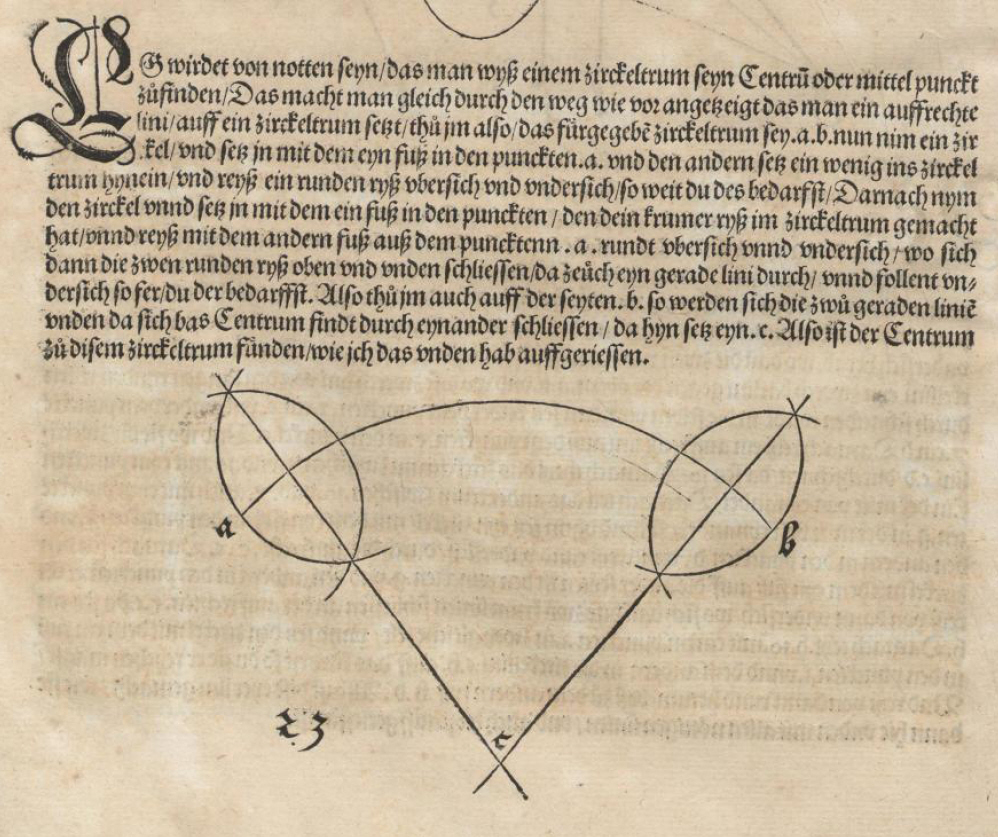 ES wirdet von notten seyn/das man wyß einem zirckeltrum seyn Centrũ oder mittel punckt
zůfinden/Das macht man gleich durch den weg wie vor angetzeigt das man ein auffrechte
lini/auff ein zirckeltrum setzt/thů jm also/das fürgegebẽ zirckeltrum sey.a.b.nun nim ein zir
ckel/vnd setz jn mit dem eyn fuß in den puncktẽn.a. vnd den andern setz ein wenig ins zirckel
trum hynein/vnd reyß ein runden ryß vbersich vnd vndersich/so weit du des bedarfst/Darnach nym
den zirckel vnnd setz jn mit dem ein fuß in den punckten/den dein krumer ryß im zirckeltrum gemacht
hat/vnnd reyß mit dem andern fuß auß dem puncktenn.a.rundt vbersich vnnd vndersich/wo sich
dann die zwen runden ryß oben vnd vnden schliessen/da zeüch eyn gerade lini durch/vnnd follent vn⸗
dersich so fer/du der bedarffst. Also thů jm auch auff der seyten.b. so werden sich die zwů geraden liniẽ
vnden da sich bas Centrum findt durch eynander schliessen/da hyn setz eyn.c. Also ist der Centrum
zů disem zirckeltrum fünden/wie jch das vnden hab auffgeriessen.
a
b
23
c